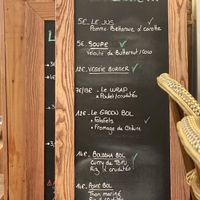 5€ LE JUS
Pomme - Betterave & carotte
5€ SOUPE
Velouté de Butternut / Coco
12€ VEGGIE BURGER
7€/13€ LE WRAP
+ Poulet / crudités
12€ Le GREEN BOL
+ Falafels
+ Fromage de Chèvre
14€ BOUDDHA BOL
Curry de Tofu
Riz & crudités
14€ POKE BOL
Thon mariné
Riz & crudités